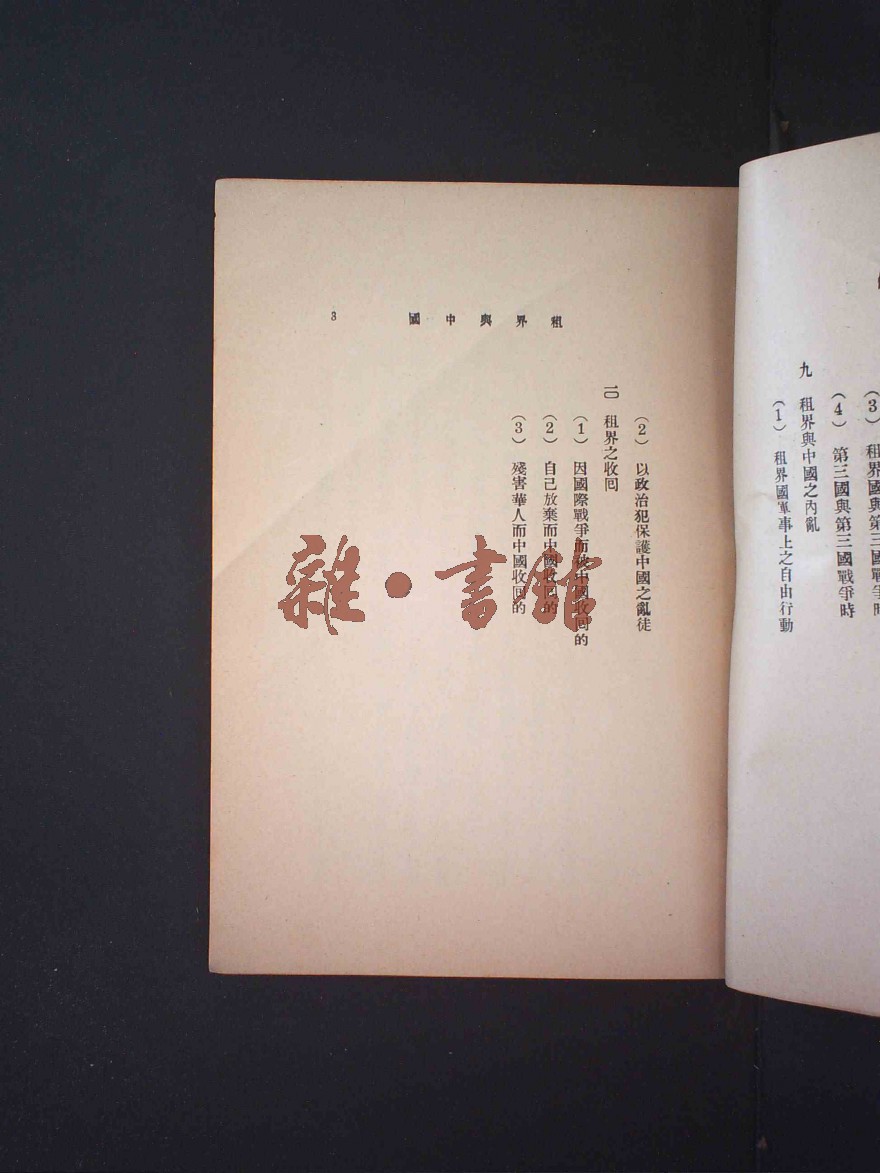 (3) 租界國與第三國戰爭時
(4) 第三國與第三國戰爭時
九 租界與中國之內亂
(1) 租界國軍事上之自由行動
租界與中國 3
(2) 以政治犯保護中國之亂徒
一〇 租界之收囘
(1) 因國際戰爭而被中國收囘的
(2) 自己放棄而中國收囘的
(3) 殘害華人而中國收囘的
雜·書館